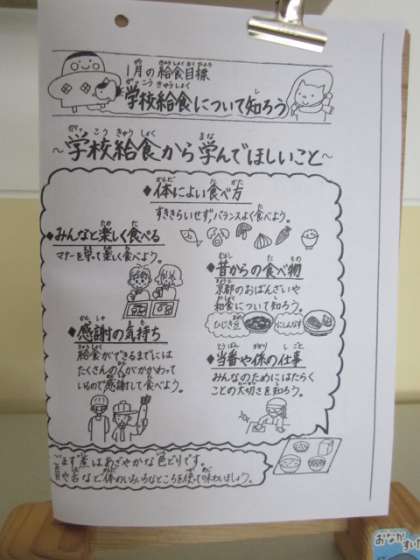 1月の給食目標
学校給食について知ろう
～学校給食から学んでほしいこと～
◆体によい食べ方
すききらいせず、バランスよく食べよう。
◆みんなと楽しく食べる
マナーを守って楽しく食べよう。
◆昔からの食べ物
京都のおばんざいや
和食について知ろう。
ひじき豆
にしんなす
◆感謝の気持ち
給食ができるまでには
たくさんの人がかかわって
いるので感謝して食べよう。
◆当番や係の仕事
みんなのためにはたらく
ことの大切さを知ろう。
は あざやかな色どりです。
体のいろいろなところを使って味わいましょう。
おなか